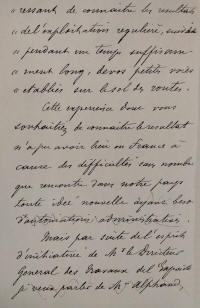 "ressant de connaitre les resultats
"de l'exploitation reguliere, 
"pendant un temps suffisam-
"ment long, de vos petits voies
"etablies sur le sol des routes.
Cette experience dont vous
souhaitiez de connaitre le resultat
n'a pu avoir lieu en France à
cause des difficultés sans nombre
que rencontre dans notre pays
toute idée nouvelle ayant besoin
d'autorisations administratives.
Mais par suite de l'esprit
d'initiative de Mr le Directeur
General des Travaux de l'Exposition
je veux parler de Mr Alphand,